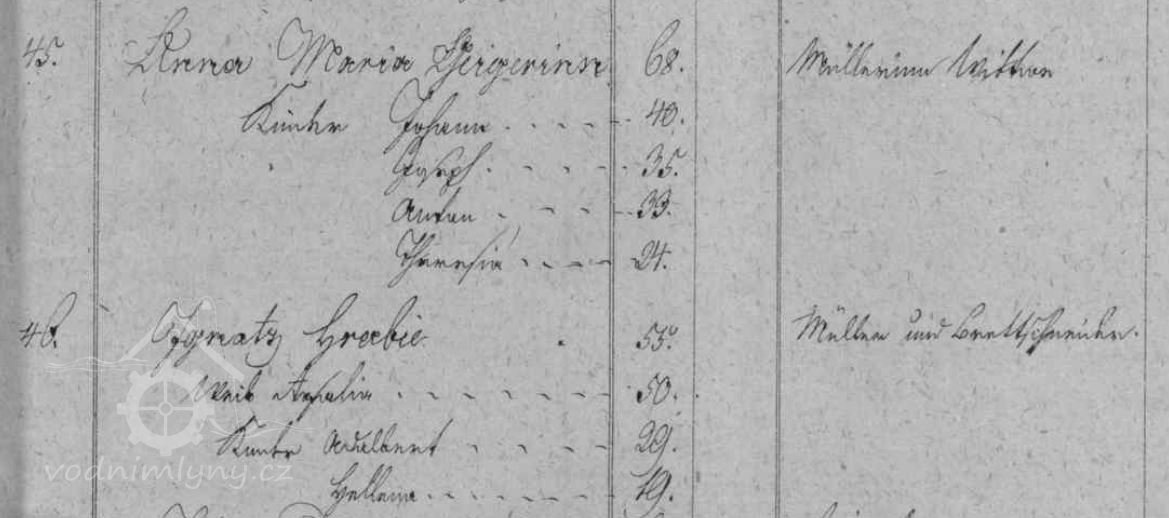 45. Anna Maria Geigerinn 68. Müllerinn Wittwe
Kinder Johann . . . . . 40.
Joseph . . . . . 35.
Anton . . . . 33.
Theresia . . . . 24.
46. Ignatz Hrebie . 55. Müller und Brettschneider.
Weib . . . . . . . 50.
Kinder Adalbert . . . . . 29.
Hellena . . . . . . 19.
vodnimlyny.cz